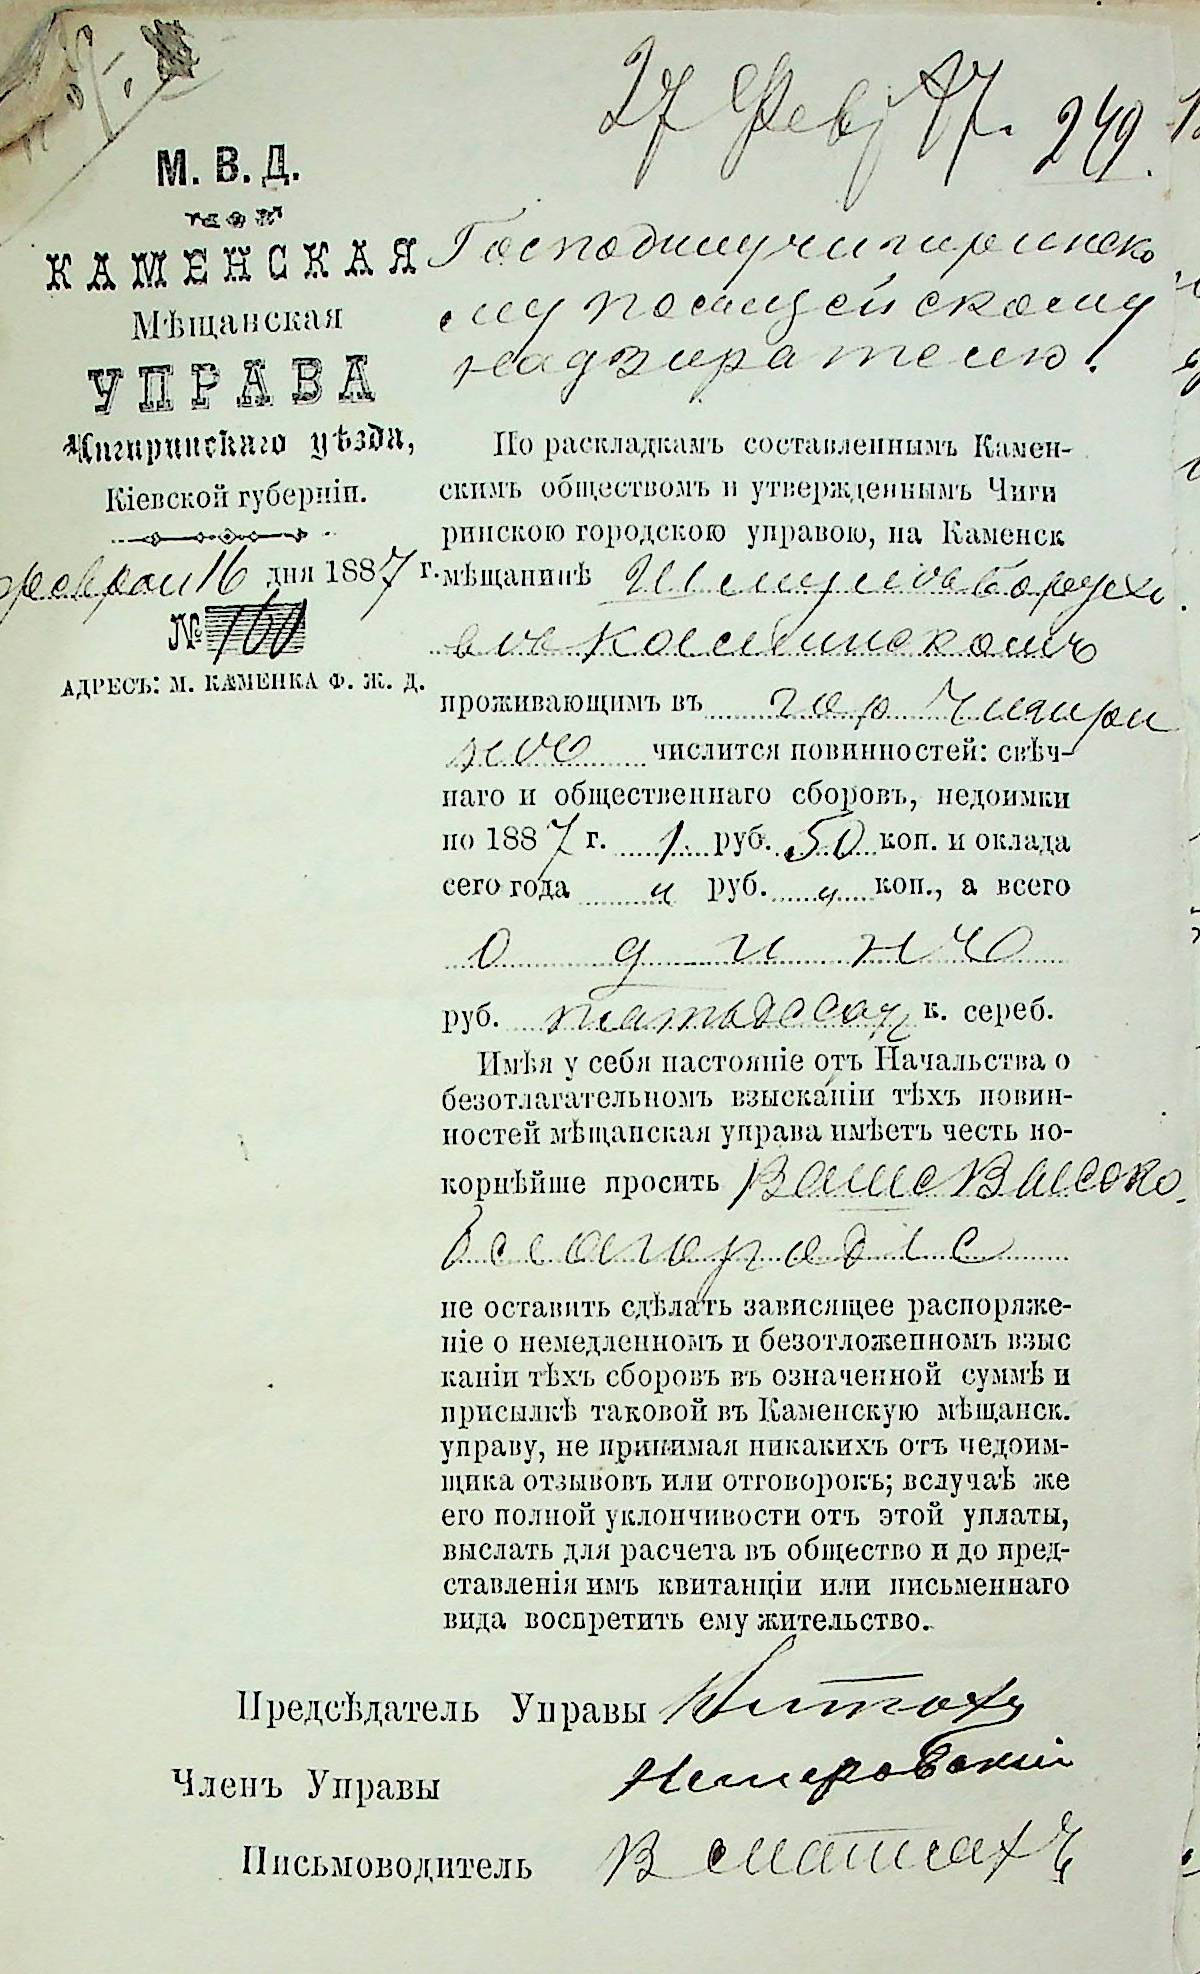 27 Фев 87. 249.
М. В. Д.
КАМЕНСКАЯ
Мѣщанская
УПРАВА
Чигиринскаго уѣзда,
Кіевской губерніи.
феврал 16 дня 1887 г.
№ 160
АДРЕСЪ: М. КАМЕНКА Ф. Ж. Д.
Господину чигиринско
му полицейскому
надзирателю.
По раскладкамъ составленнымъ Камен-
скимъ обществомъ и утвержденнымъ Чиги
ринскою городскою управою, на Каменск
мѣщанинѣ Шмулѣ Борухо
вѣ Косминскомъ
проживающимъ въ гор Чигири
нѣ числится повинностей: свѣч-
наго и общественнаго сборовъ, недоимки
по 1887 г. 1 руб. 50 коп. и оклада
сего года " руб. " коп., а всего
одинъ
руб. пятьдесят к. сереб.
Имѣя у себя настояніе отъ Начальства о
безотлагательномъ взысканіи тѣхъ повин-
ностей мѣщанская управа имѣетъ честь по-
корнѣйше просить Ваше Высоко
благородіе
не оставить сдѣлать зависящее распоряже-
ніе о немедленномъ и безотложенномъ взыс
каніи тѣхъ сборовъ въ означенной суммѣ и
присылкѣ таковой въ Каменскую мѣщанск.
управу, не принимая никакихъ отъ недоим-
щика отзывовъ или отговорокъ; вслучаѣ же
его полной уклончивости отъ этой уплаты,
выслать для расчета въ общество и до пред-
ставленія имъ квитанціи или письменнаго
вида воспретить ему жительство.
Предсѣдатель Управы
Членъ Управы Немировскій
Письмоводитель В